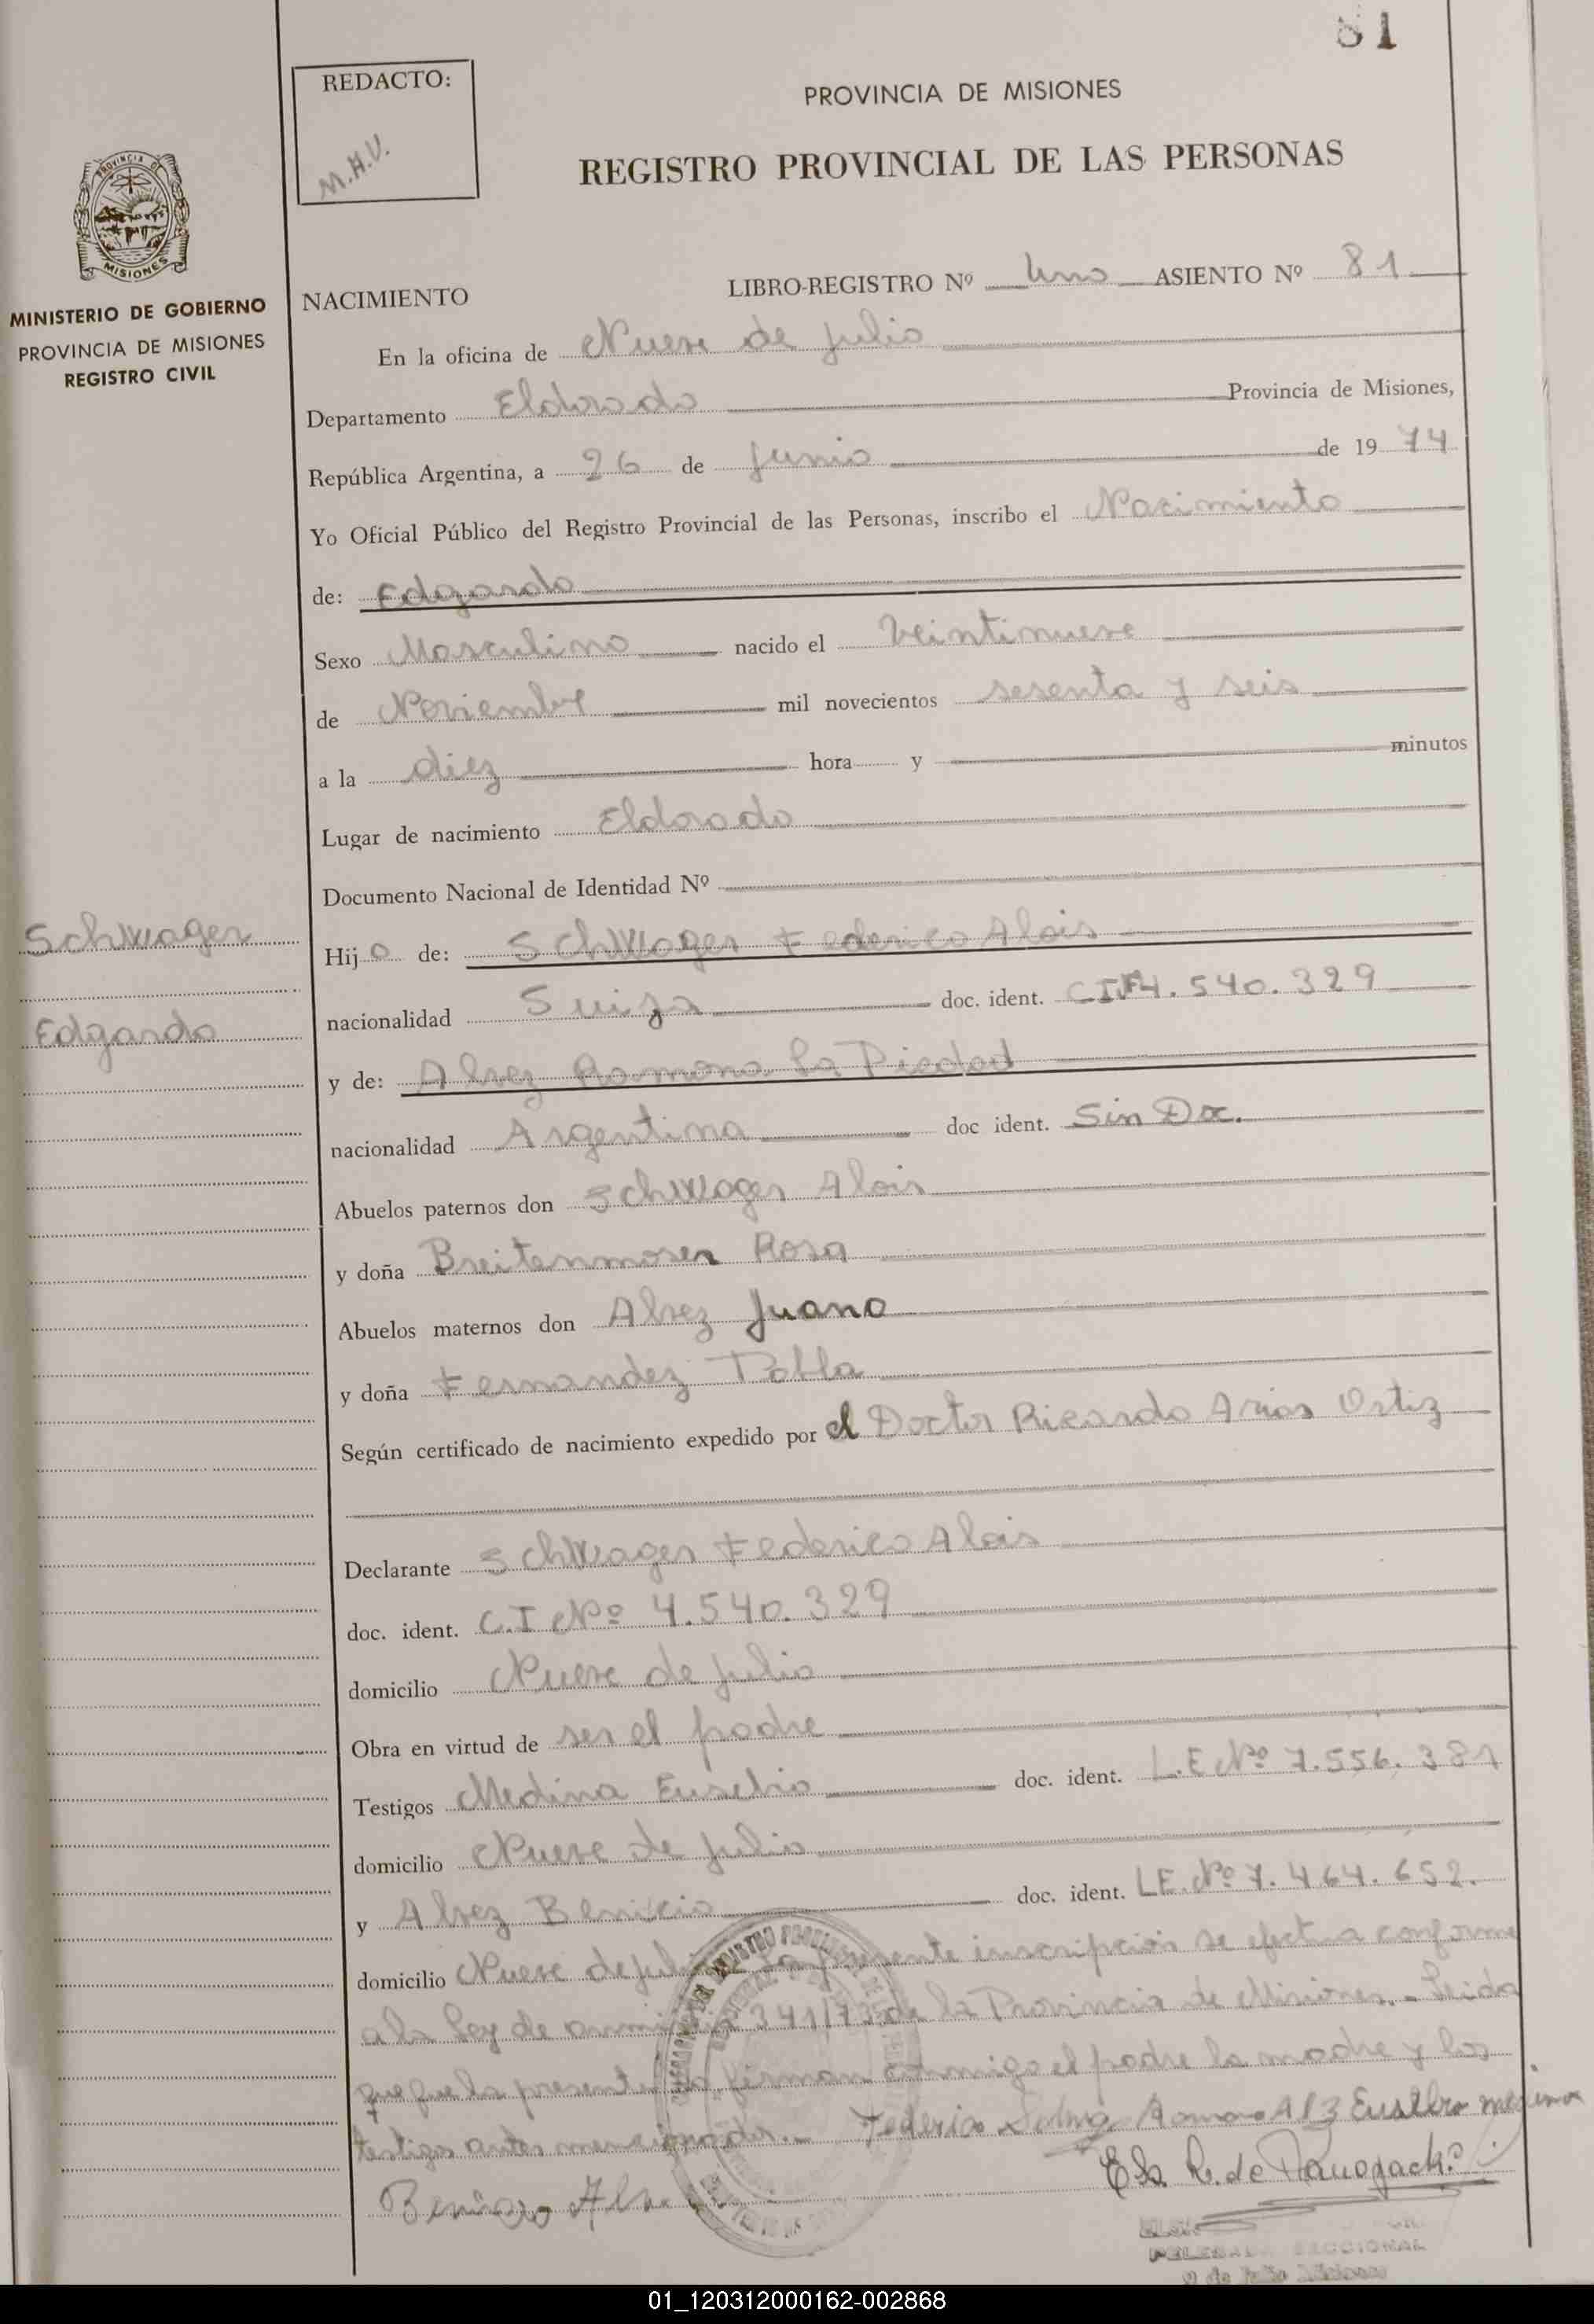 81
REDACTO:
M.H.V.
PROVINCIA DE MISIONES
REGISTRO PROVINCIAL DE LAS PERSONAS
PROVINCIA DE
MISIONES
MINISTERIO DE GOBIERNO
PROVINCIA DE MISIONES
REGISTRO CIVIL
NACIMIENTO LIBRO-REGISTRO Nº Uno ASIENTO Nº 81
En la oficina de Nueve de Julio
Departamento Eldorado Provincia de Misiones,
República Argentina, a 26 de Junio de 1974
Yo Oficial Público del Registro Provincial de las Personas, inscribo el Nacimiento
de: Edgardo
Sexo Masculino nacido el Veintinueve
de Noviembre mil novecientos sesenta y seis
a la diez hora y minutos
Lugar de nacimiento Eldorado
Documento Nacional de Identidad Nº
Schwager
Edgardo
Hijo de: Schwager Federico Alois
nacionalidad Suiza doc. ident. C.I. 4.540.329
y de: Alvez Ramona La Piedad
nacionalidad Argentina doc ident. Sin Doc.
Abuelos paternos don Schwager Alois
y doña Breitenmoser Rosa
Abuelos maternos don Alvez Juano
y doña Fernandez
Según certificado de nacimiento expedido por el Doctor Ricardo Arias Ortiz
Declarante Schwager Federico Alois
doc. ident. C.I Nº 4.540.329
domicilio Nueve de Julio
Obra en virtud de ser el padre
Testigos Medina Eusebio doc. ident. L.E Nº 7.556.381
domicilio Nueve de Julio
y Alvez Benicio doc. ident. L.E. Nº 7.464.652.
domicilio Nueve de Julio La presente inscripción se efectua conforme
a la Ley de 341/73 de la Provincia de Misiones.- Leida
que fue la presente la firman conmigo el padre la madre y los
testigos antes mencionados.- Federico Ramona Alz Eusebio medina
Benicio
DELEGADA SECCIONAL
9 de Julio Misiones
01_120312000162-002868